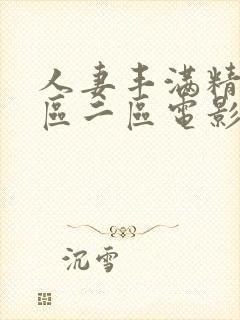 人妻丰满精
區二區電影
沉雪